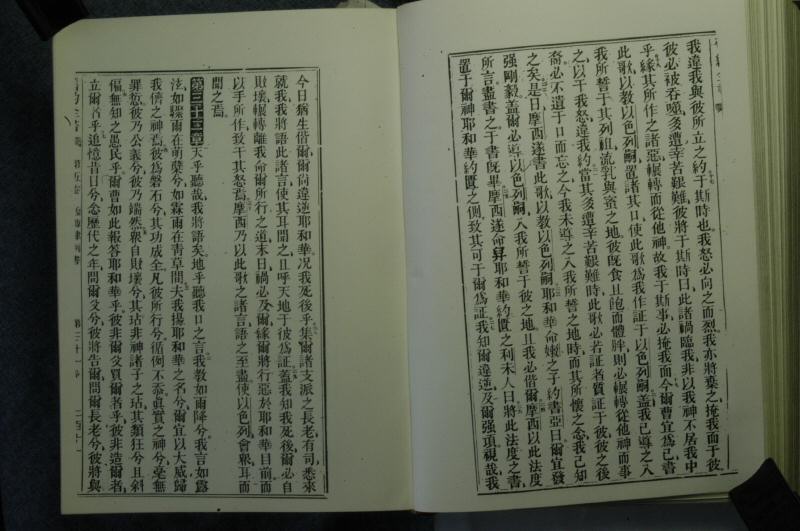 我違我與彼所立之約于斯時也我怒必向之而烈我亦將棄之掩我面于彼
彼必被吞噬多遭辛苦艱難彼將于斯時曰此諸禍臨我非以我神不居我中
乎緣其所作之諸惡輾轉而從他神故我于斯事必掩我面今爾曹宜為己書
此歌以教以色列嗣置諸其口使此歌為我作証于以色列嗣蓋我已導之入
我所誓于其列祖流乳與蜜之地彼既食且飽而體胖則必輾轉從他神而事
之以干我怒違我約當其多遭辛苦艱難時此歌必若証者質証于彼彼之後
裔必不遺于口而忘之今我未導之入我所誓之地時而其所懷之念我已知
之矣是日摩西遂書此歌以教以色列嗣耶和華命嫩之子約書亞曰爾宜發
强剛毅蓋爾必導以色列嗣入我所誓于彼之地且我必偕爾摩西以此法度
所言盡書之于書既畢摩西遂命舁耶和華約匱之利未人曰將此法度之書
置于爾神耶和華約匱之側致其可于爾為証我知爾違逆及爾强項視哉我
今日猶生偕爾爾尚違逆耶和華况我死後乎集爾諸支派之長老有司悉來
就我我將語此諸言使其耳聞之且呼天地于彼為証蓋我知我死後爾必自
敗壞輾轉離我命爾所行之道末日禍必及爾緣爾將行惡於耶和華目前而
以手所作致干其怒焉摩西乃以此歌之諸言語之至盡使以色列會衆耳而
聞之焉
第三十二章天乎聽哉我將語矣地乎聽我口之言我教如雨降兮我言如露
法如驟雨在萌櫱兮如霖雨在靑草間夫我揚耶和華之名兮爾宜以大威歸
我儕之神焉彼為磐石兮其功成全凡彼所行兮循例不忝真實之神兮毫無
罪愆彼乃公義兮彼乃端然衆自敗壞兮其玷非神諸子之玷其類狂兮且斜
偏無知之愚民乎爾曹如此報答耶和華乎彼非爾父買爾者乎彼非造爾者
立爾者乎追憶昔日兮念歷代之年問爾父兮彼將告爾問爾長老兮彼將與